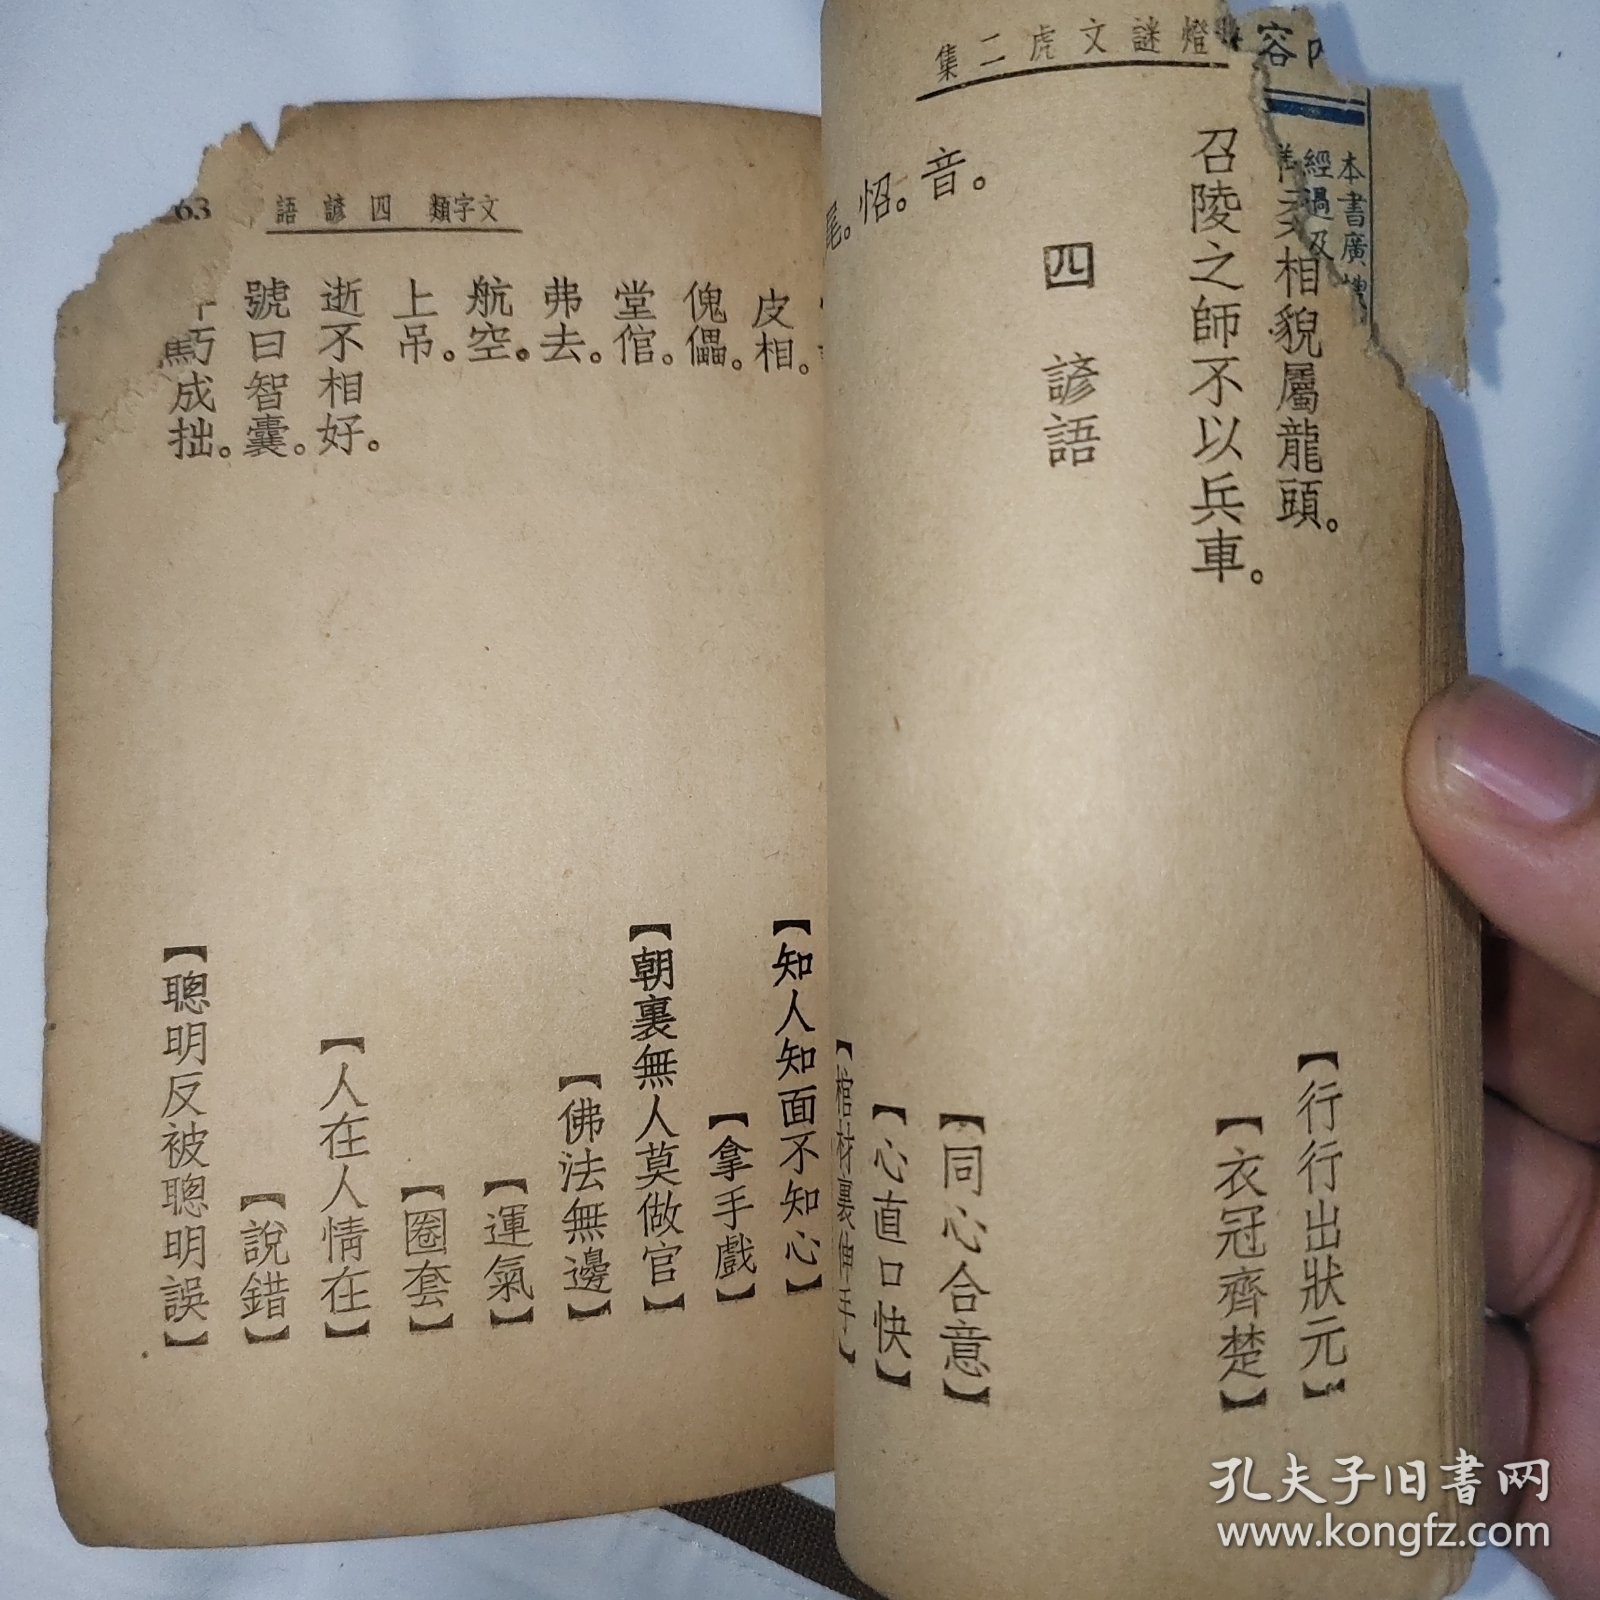 集二虎文謎燈
容
本書廣
經過及
相貌屬龍頭。
【行行出狀元】
召陵之師不以兵車。
【衣冠齊楚】
四 諺語
音。
【同心合意】
㤐。
【心直口快】
尾。
【棺材裏伸手】
263
語諺四 類字文
皮相。
【知人知面不知心】
傀儡。
【拿手戲】
堂倌。
【朝裏無人莫做官】
弗去。
【佛法無邊】
航空。
【運氣】
上吊。
【圈套】
逝不相好。
【人在人情在】
號曰智囊。
【說錯】
成拙。
【聰明反被聰明誤】
孔夫子旧書网
www.kongfz.com